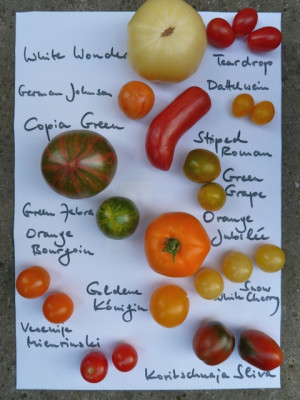 White Wonder
Teardrop
German Johnson
Dattelwein
Copia Green
Striped
Roman
Green
Grape
Green Zebra
Orange
Jubilée
Orange
Bourgoin
Goldene
Königin
Snow
White Cherry
Vesenije
Mieurinski
Koritschnaja Sliva